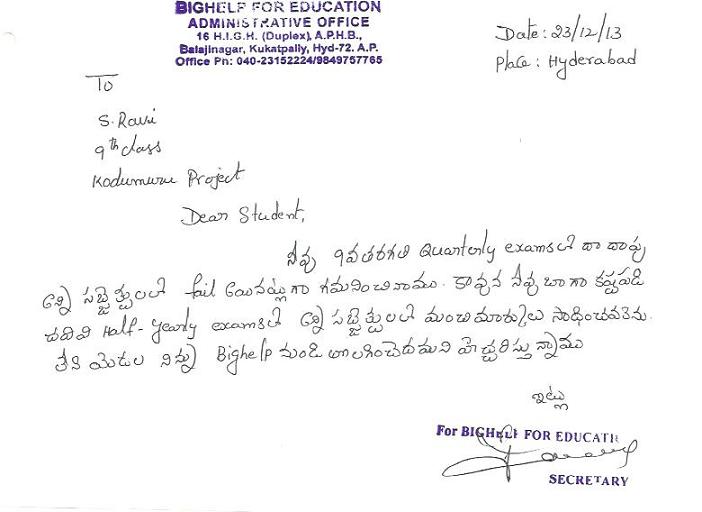 BIGHELP FOR EDUCATION
ADMINISTRATIVE OFFICE
16 H.I.G.H. (Duplex), A.P.H.B.,
Balajinagar, Kukatpally, Hyd-72. A.P.
Office Pn: 040-23152224/9849757765
Date: 23/12/13
Place: Hyderabad
To
S. Ravi
9th class
Kodumuru Project
Dear Student,
నీవు 9వతరగతి Quarterly examsలో దాదాపు
అన్ని సబ్జెక్టులలో fail అయినట్లుగా గమనించినాము. కావున నీవు బాగా కష్టపడి
చదివి Half-Yearly examsలో అన్ని సబ్జెక్టులలో మంచిమార్కులు సాధించవలెను.
లేని యెడల నిన్ను Bighelp నుండి తొలగించెదమని హెచ్చరిస్తున్నాము
ఇట్లు
For BIGHELP FOR EDUCATI
SECRETARY